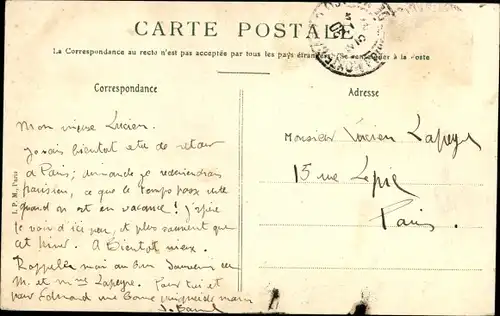 CARTE POSTALE
La Correspondance au recto n'est pas acceptée par tous les pays étrangers (Se renseigner à la Poste
Correspondance
Adresse
I. P. M., Paris
Mon vieux Lucien.
bientôt de retour
à Paris; demande je redeviendrai
parisien, ce que le temps passe vite
quand on est en vacance! J'espère
te voir d'ici peu, et plus souvent que
cet hiver. À Bientôt vieux.
Rappelle moi au Bon Souvenir de
M. et Mme Lapeyre. Pour toi et
pour Edmond une bonne poignée de main
Monsieur Lucien Lapeyre
15 rue Lepic
Paris.